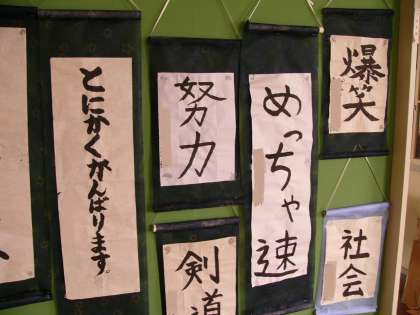 とにかくがんばります。
努力
剣道
めっちゃ速
爆笑
社会